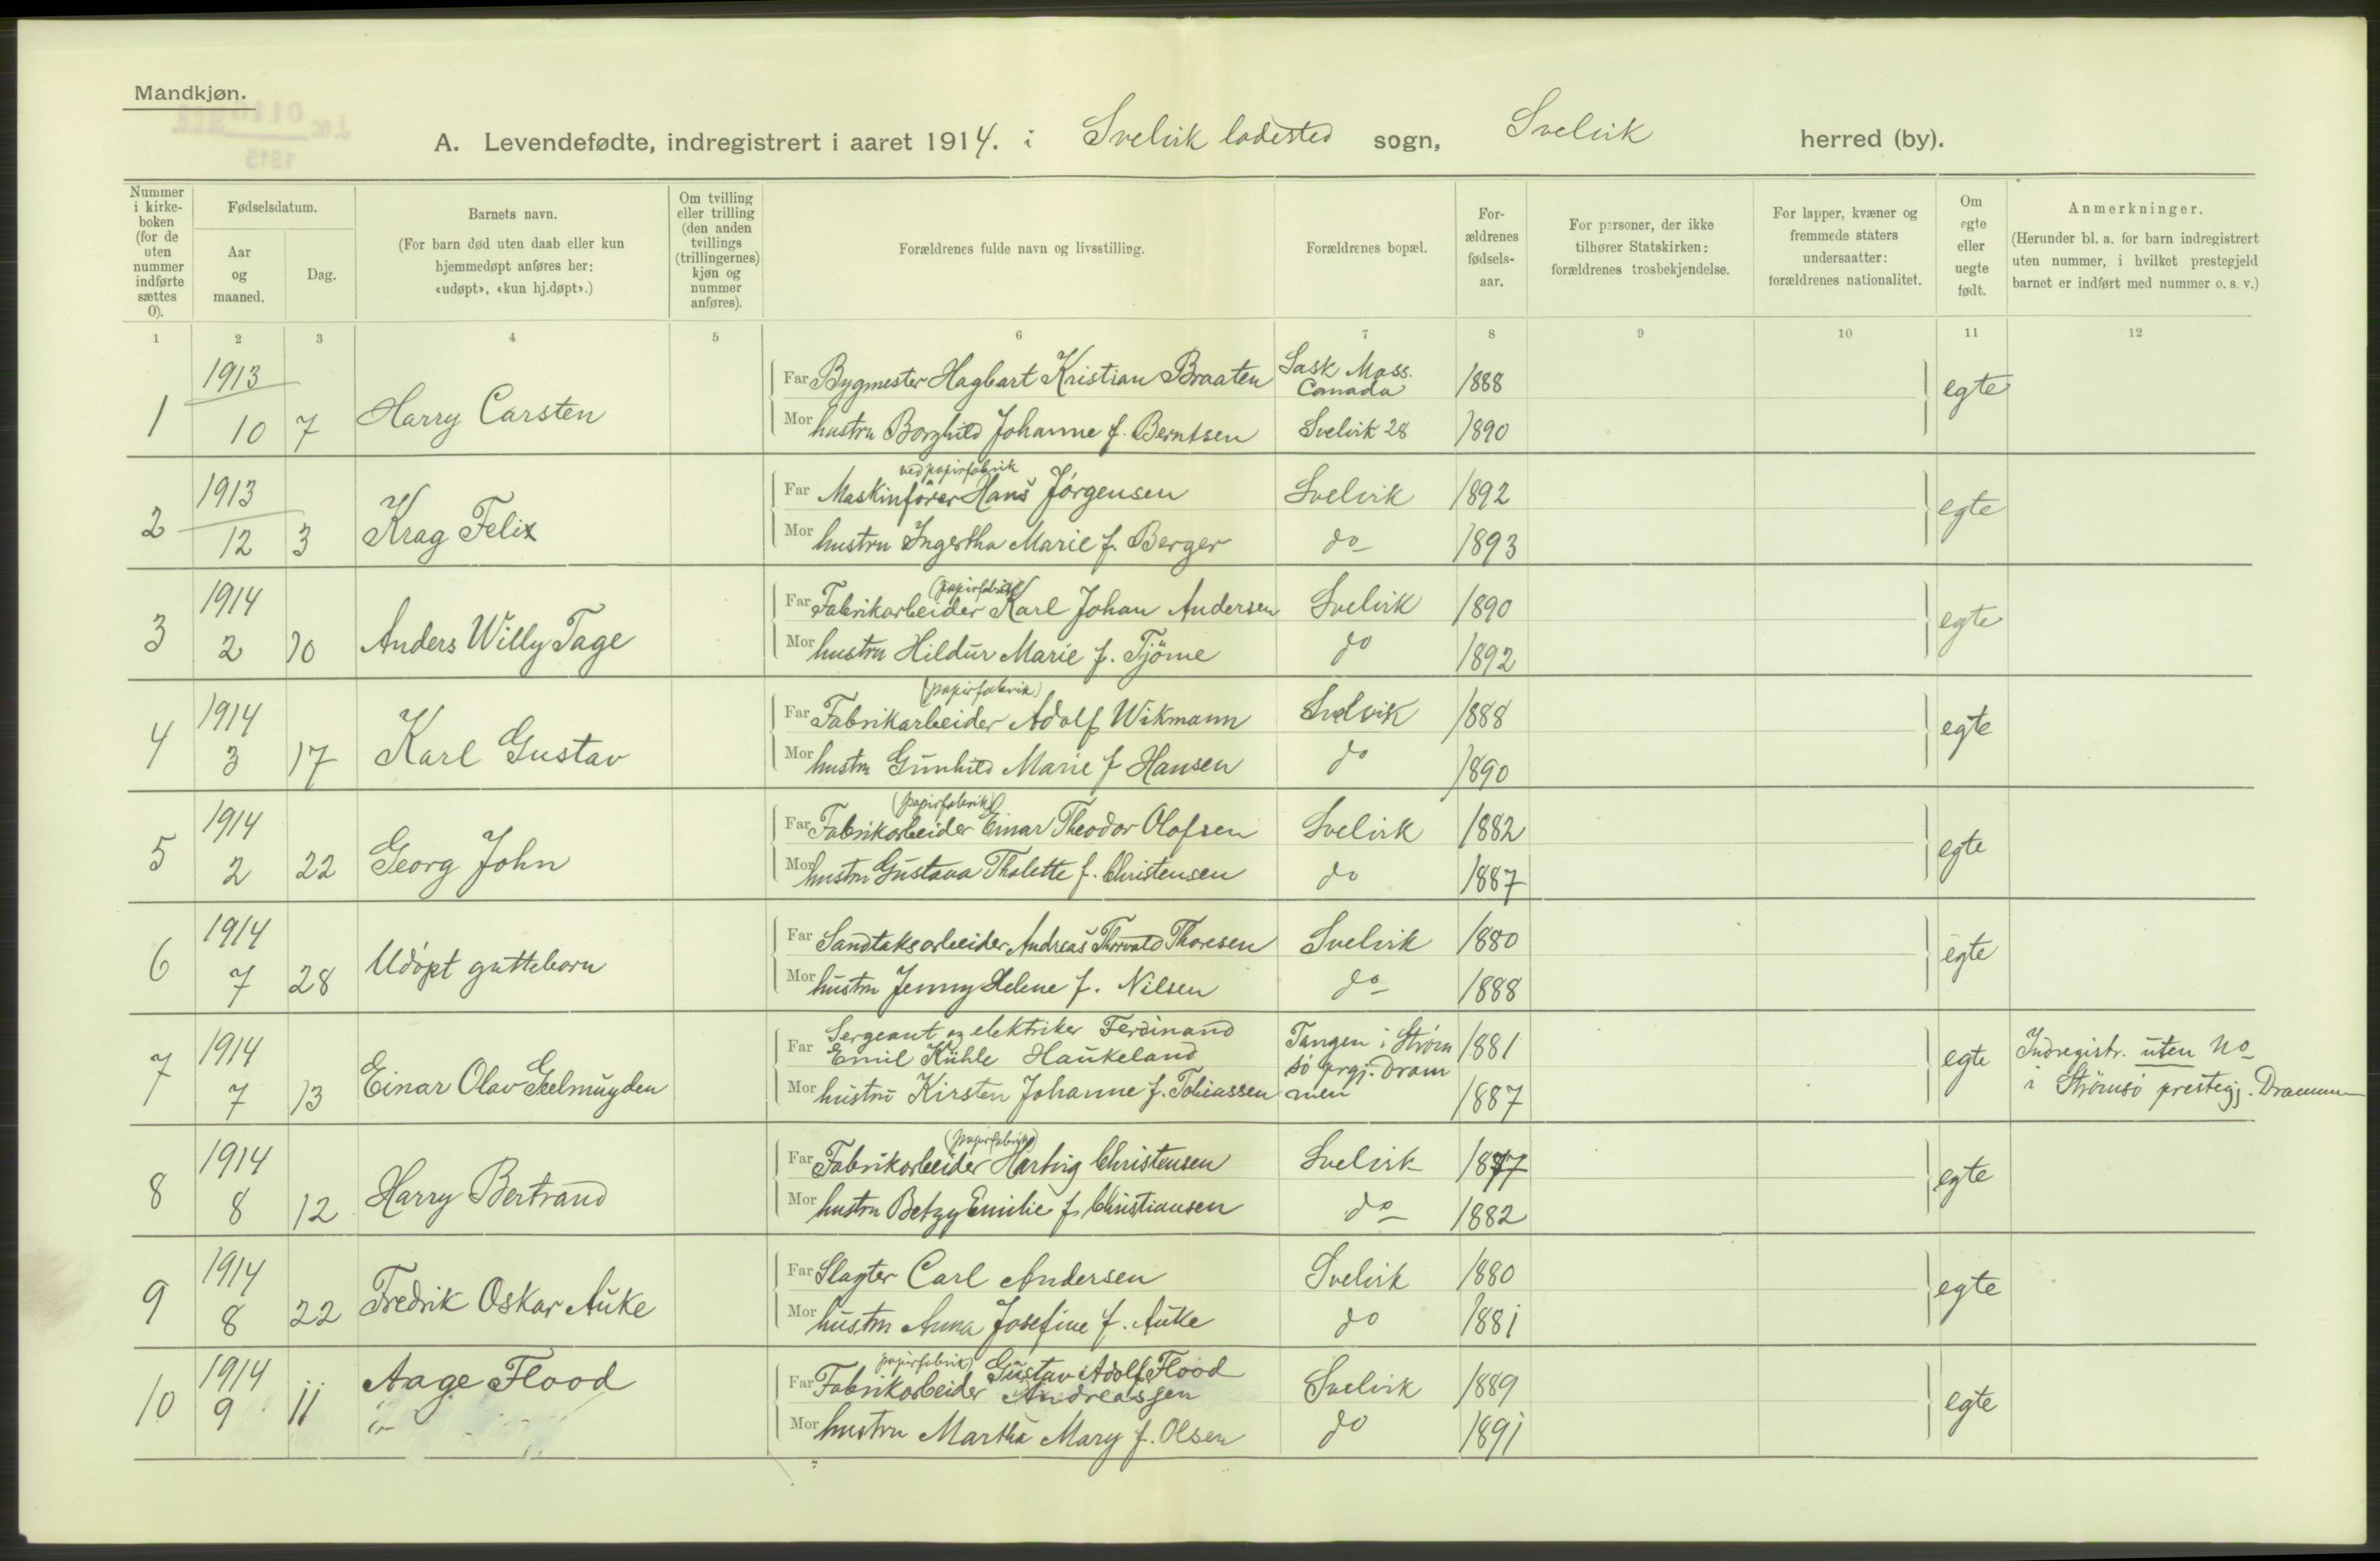 Mandkjøn.
A. Levendefødte, indregistrert i aaret 1914. i Svelvik ladested sogn, Svelvik herred (by).
Nummer i kirke-boken (for de uten nummer indførte sættes 0).
Fødselsdatum.
Aar og maaned.
Dag.
Barnets navn.
(For barn død uten daab eller kun hjemmedøpt anføres her: «udøpt», «kun hj.døpt».)
Om tvilling eller trilling (den anden tvillings (trillingernes) kjøn og nummer anføres).
Forældrenes fulde navn og livsstilling.
Forældrenes bopæl.
For-ældrenes fødsels-aar.
For personer, der ikke tilhører Statskirken: forældrenes trosbekjendelse.
For lapper, kvæner og fremmede staters undersaatter: forældrenes nationalitet.
Om egte eller uegte født.
Anmerkninger.
(Herunder bl. a. for barn indregistrert uten nummer, i hvilket prestegjeld barnet er indført med nummer o. s. v.)
1 2 3 4 5 6 7 8 9 10 11 12
1 1913 10 7 Harry Carsten
Far Bygmester Hagbart Kristian Braaten Sask Mass. Canada 1888 egte
Mor hustru Borghild Johanne f. Berntsen Svelvik 28 1890
2 1913 12 3 Krag Felix
ved papirfabrik
Far Maskinfører Hans Jørgensen Svelvik 1892 egte
Mor hustru Ingertha Marie f. Berger do 1893
3 1914 2 10 Anders Willy Tage
(papirfabrik)
Far Fabrikarbeider Karl Johan Andersen Svelvik 1890 egte
Mor hustru Hildur Marie f. Tjöme do 1892
4 1914 3 17 Karl Gustav
(papirfabrik)
Far Fabrikarbeider Adolf Wikmann Svelvik 1888 egte
Mor hustru Gunhild Marie f Hansen do 1890
5 1914 2 22 Georg John
(papirfabrik)
Far Fabrikarbeider Einar Theodor Olofsen Svelvik 1882 egte
Mor hustru Gustava Thalette f. Christensen do 1887
6 1914 7 28 Udöpt guttebarn
Far Sandtaksarbeider Andreas Thorvald Thoresen Svelvik 1880 egte
Mor hustru Jenny Helene f. Nilsen do 1888
7 1914 7 13 Einar Olav Geelmuyden
Far Sergeant og elektriker Ferdinand Emil Kühle Haukeland Tangen i Strömsö prgj. Drammen 1881 egte Indregistr. uten No i Strömsö prestegj. Drammen
Mor hustru Kirsten Johanne f. Tobiassen 1887
8 1914 8 12 Harry Bertrand
(papirfabrik)
Far Fabrikarbeider Hartvig Christensen Svelvik 1877 egte
Mor hustru Betzy Emilie f. Christiansen do 1882
9 1914 8 22 Fredrik Oskar Auke
Far Slagter Carl Andersen Svelvik 1880 egte
Mor hustru Anna Josefine f. Auke do 1881
10 1914 9 11 Aage Flood
papirfabrik) Gustav Adolf Flood
Far Fabrikarbeider Andreassen Svelvik 1889 egte
Mor hustru Martha Mary f. Olsen do 1891